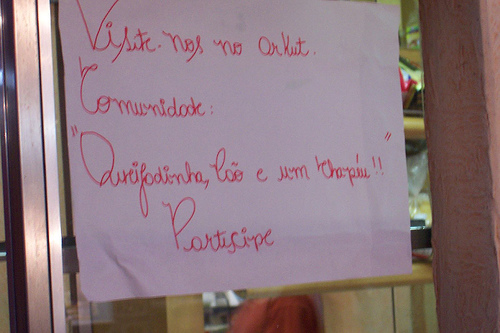 Visite-nos no orkut.
Comunidade:
"Queijadinha, Cão e um Chapéu"!!
Participe